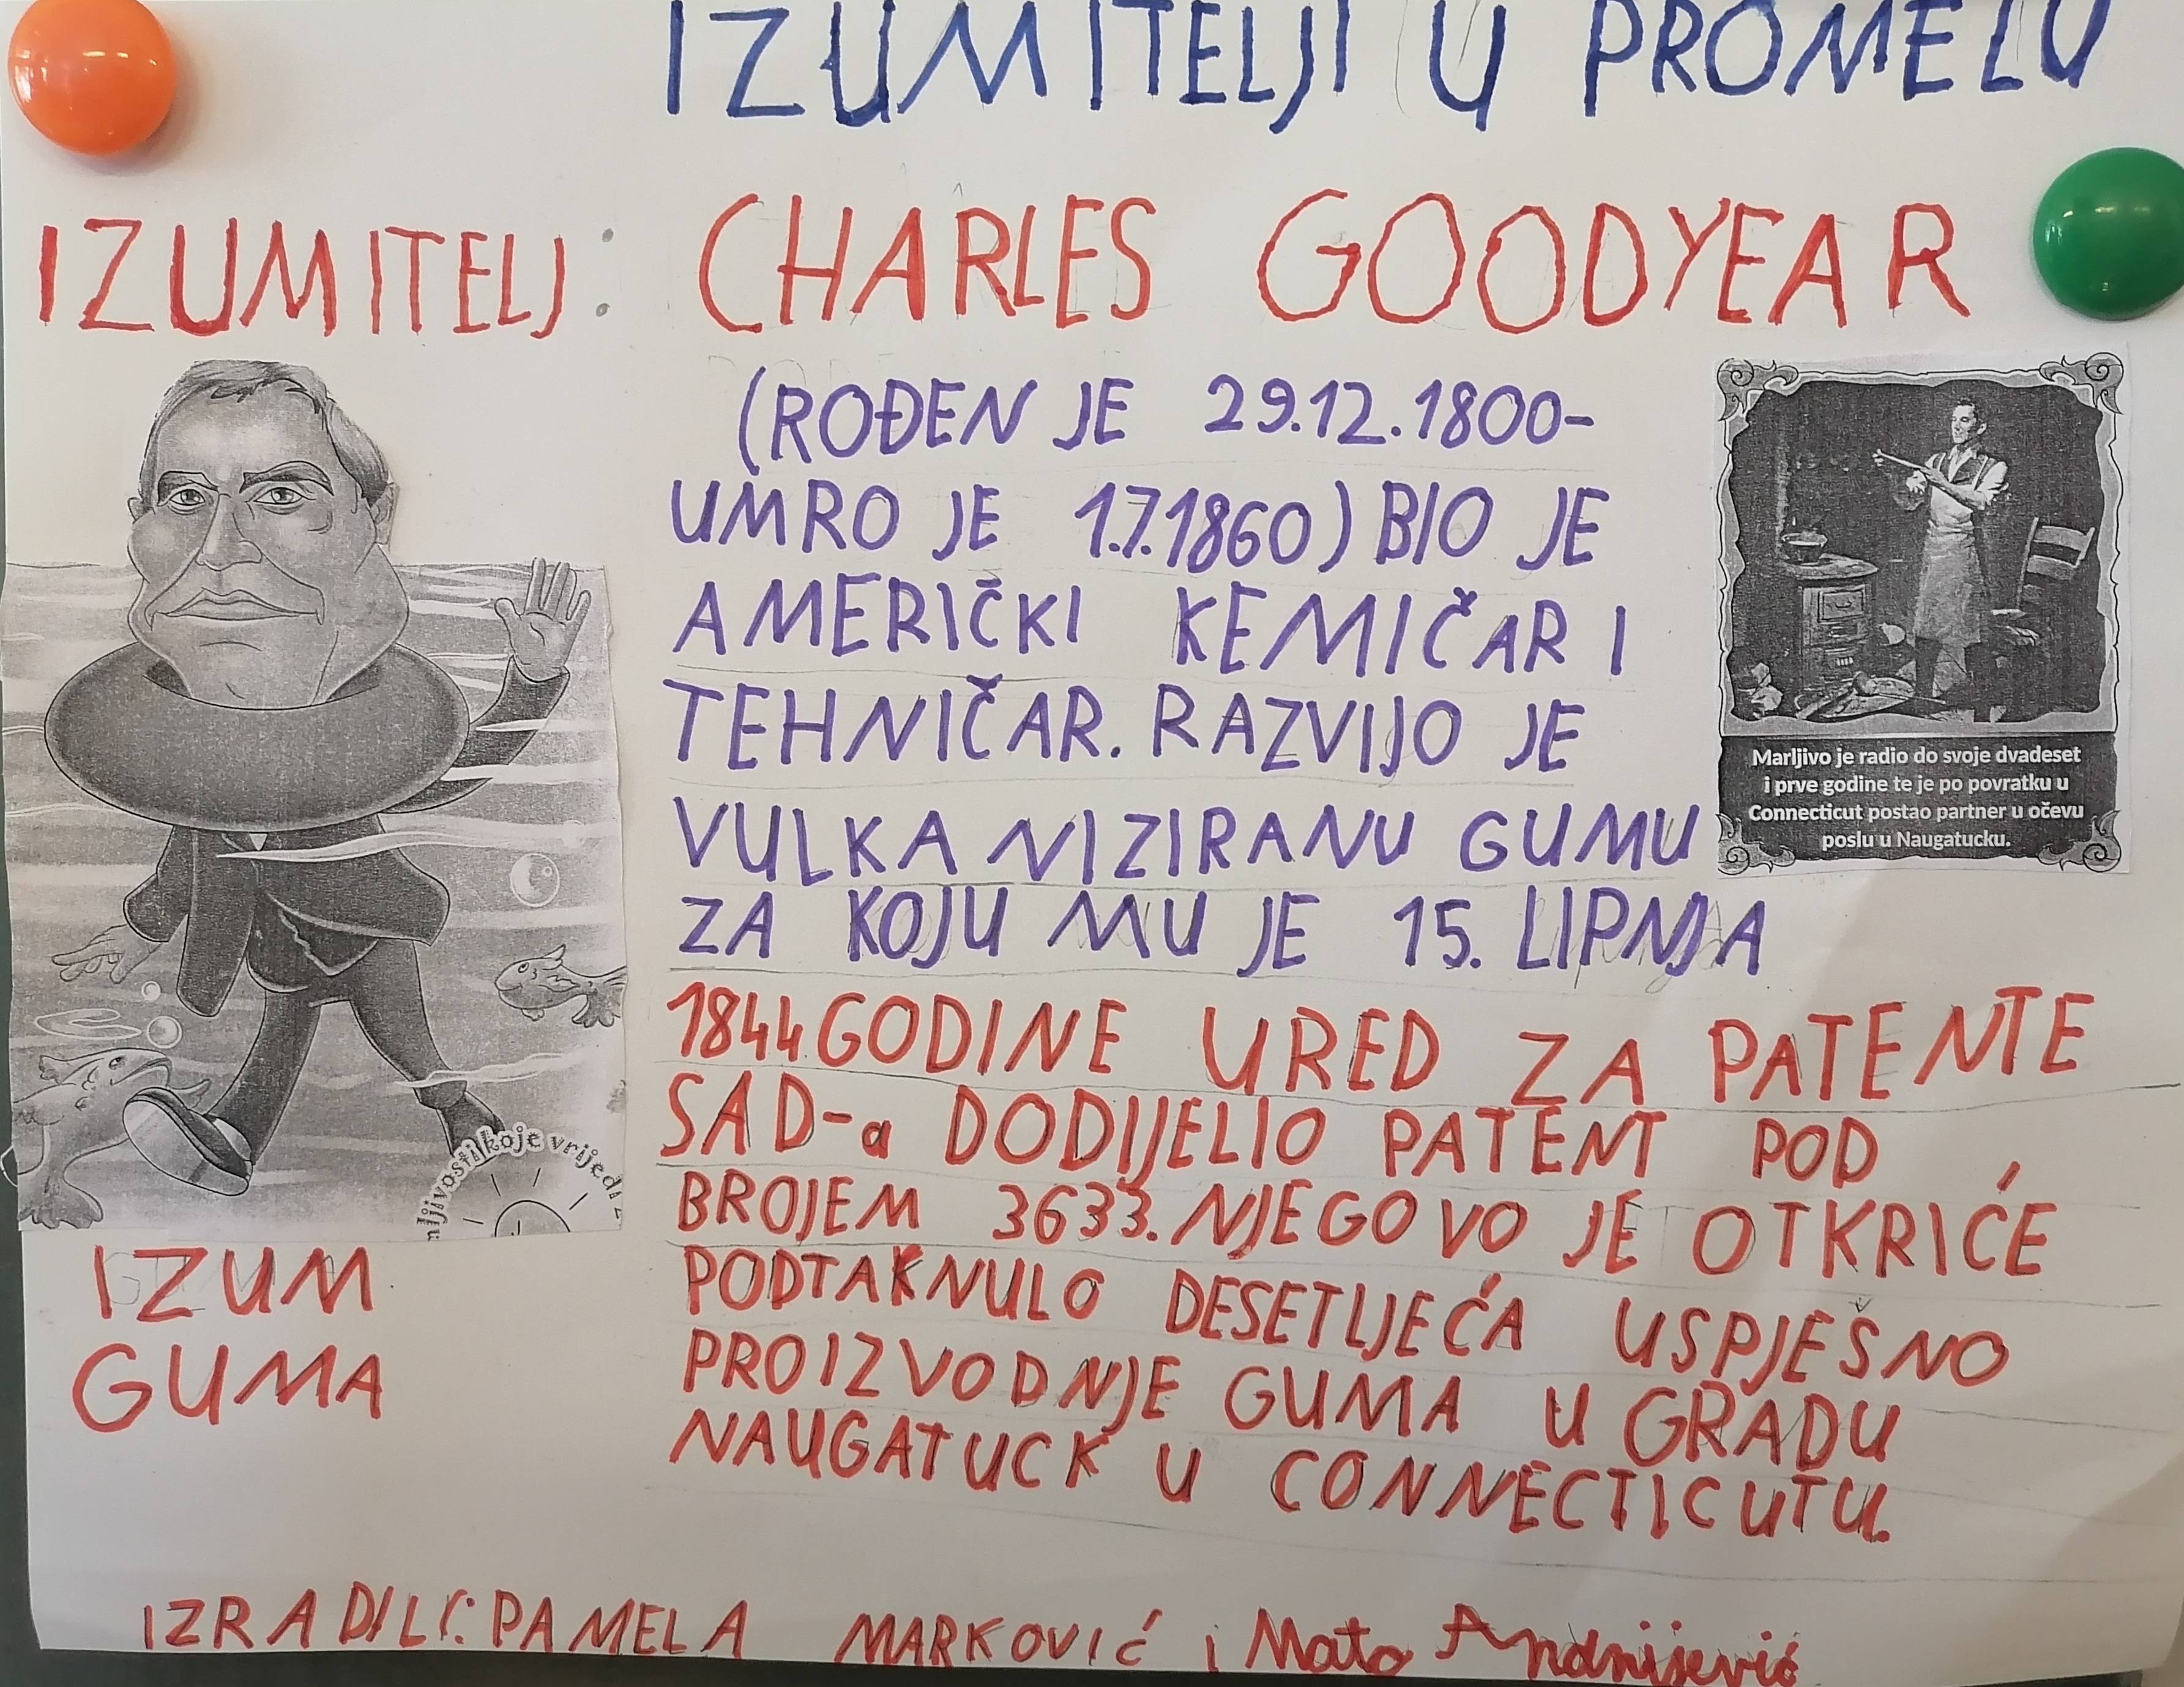 IZUMITELJI U PROMETU
IZUMITELJ: CHARLES GOODYEAR
(ROĐEN JE 29.12.1800-
UMRO JE 1.7.1860) BIO JE
AMERIČKI KEMIČAR I
TEHNIČAR. RAZVIJO JE
VULKANIZIRANU GUMU
ZA KOJU MU JE 15. LIPNJA
1844. GODINE URED ZA PATENTE
SAD-a DODIJELIO PATENT POD
BROJEM 3633. NJEGOVO JE OTKRIĆE
PODTAKNULO DESETLJEĆA USPJEŠNO
PROIZVODNJE GUMA U GRADU
NAUGATUCK U CONNECTICUTU.
Marljivo je radio do svoje dvadeset
i prve godine te je po povratku u
Connecticut postao partner u očevu
poslu u Naugatucku.
koje vrijedi
IZUM
GUMA
IZRADILI: PAMELA MARKOVIĆ i Mato Andrijević